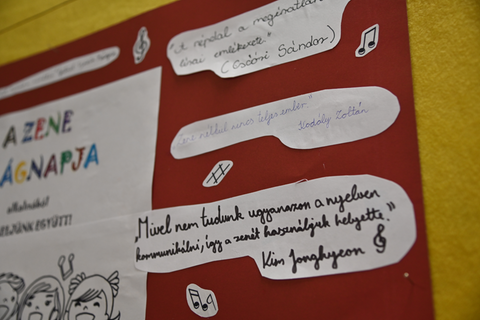 "A népdal a megíratlan
lírai emlékezet."
(Csoóri Sándor)
zene nélkül nincs teljes ember."
Kodály Zoltán
A ZENE
ÁGNAPJA
alkalmából
ESJÜNK EGYÜTT!
„Mivel nem tudunk ugyanazon a nyelven
kommunikálni, így a zenét használjuk helyette."
Kim Jonghyeon